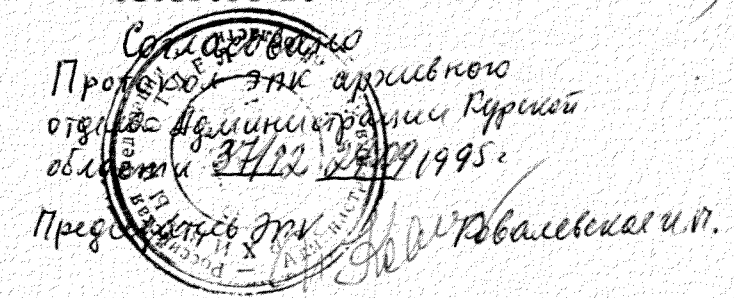 Согласовано
Протокол ЭПК архивного
отдела Администрации Курской
области 37/12 1995г
Председатель ЭПК Ковалевская